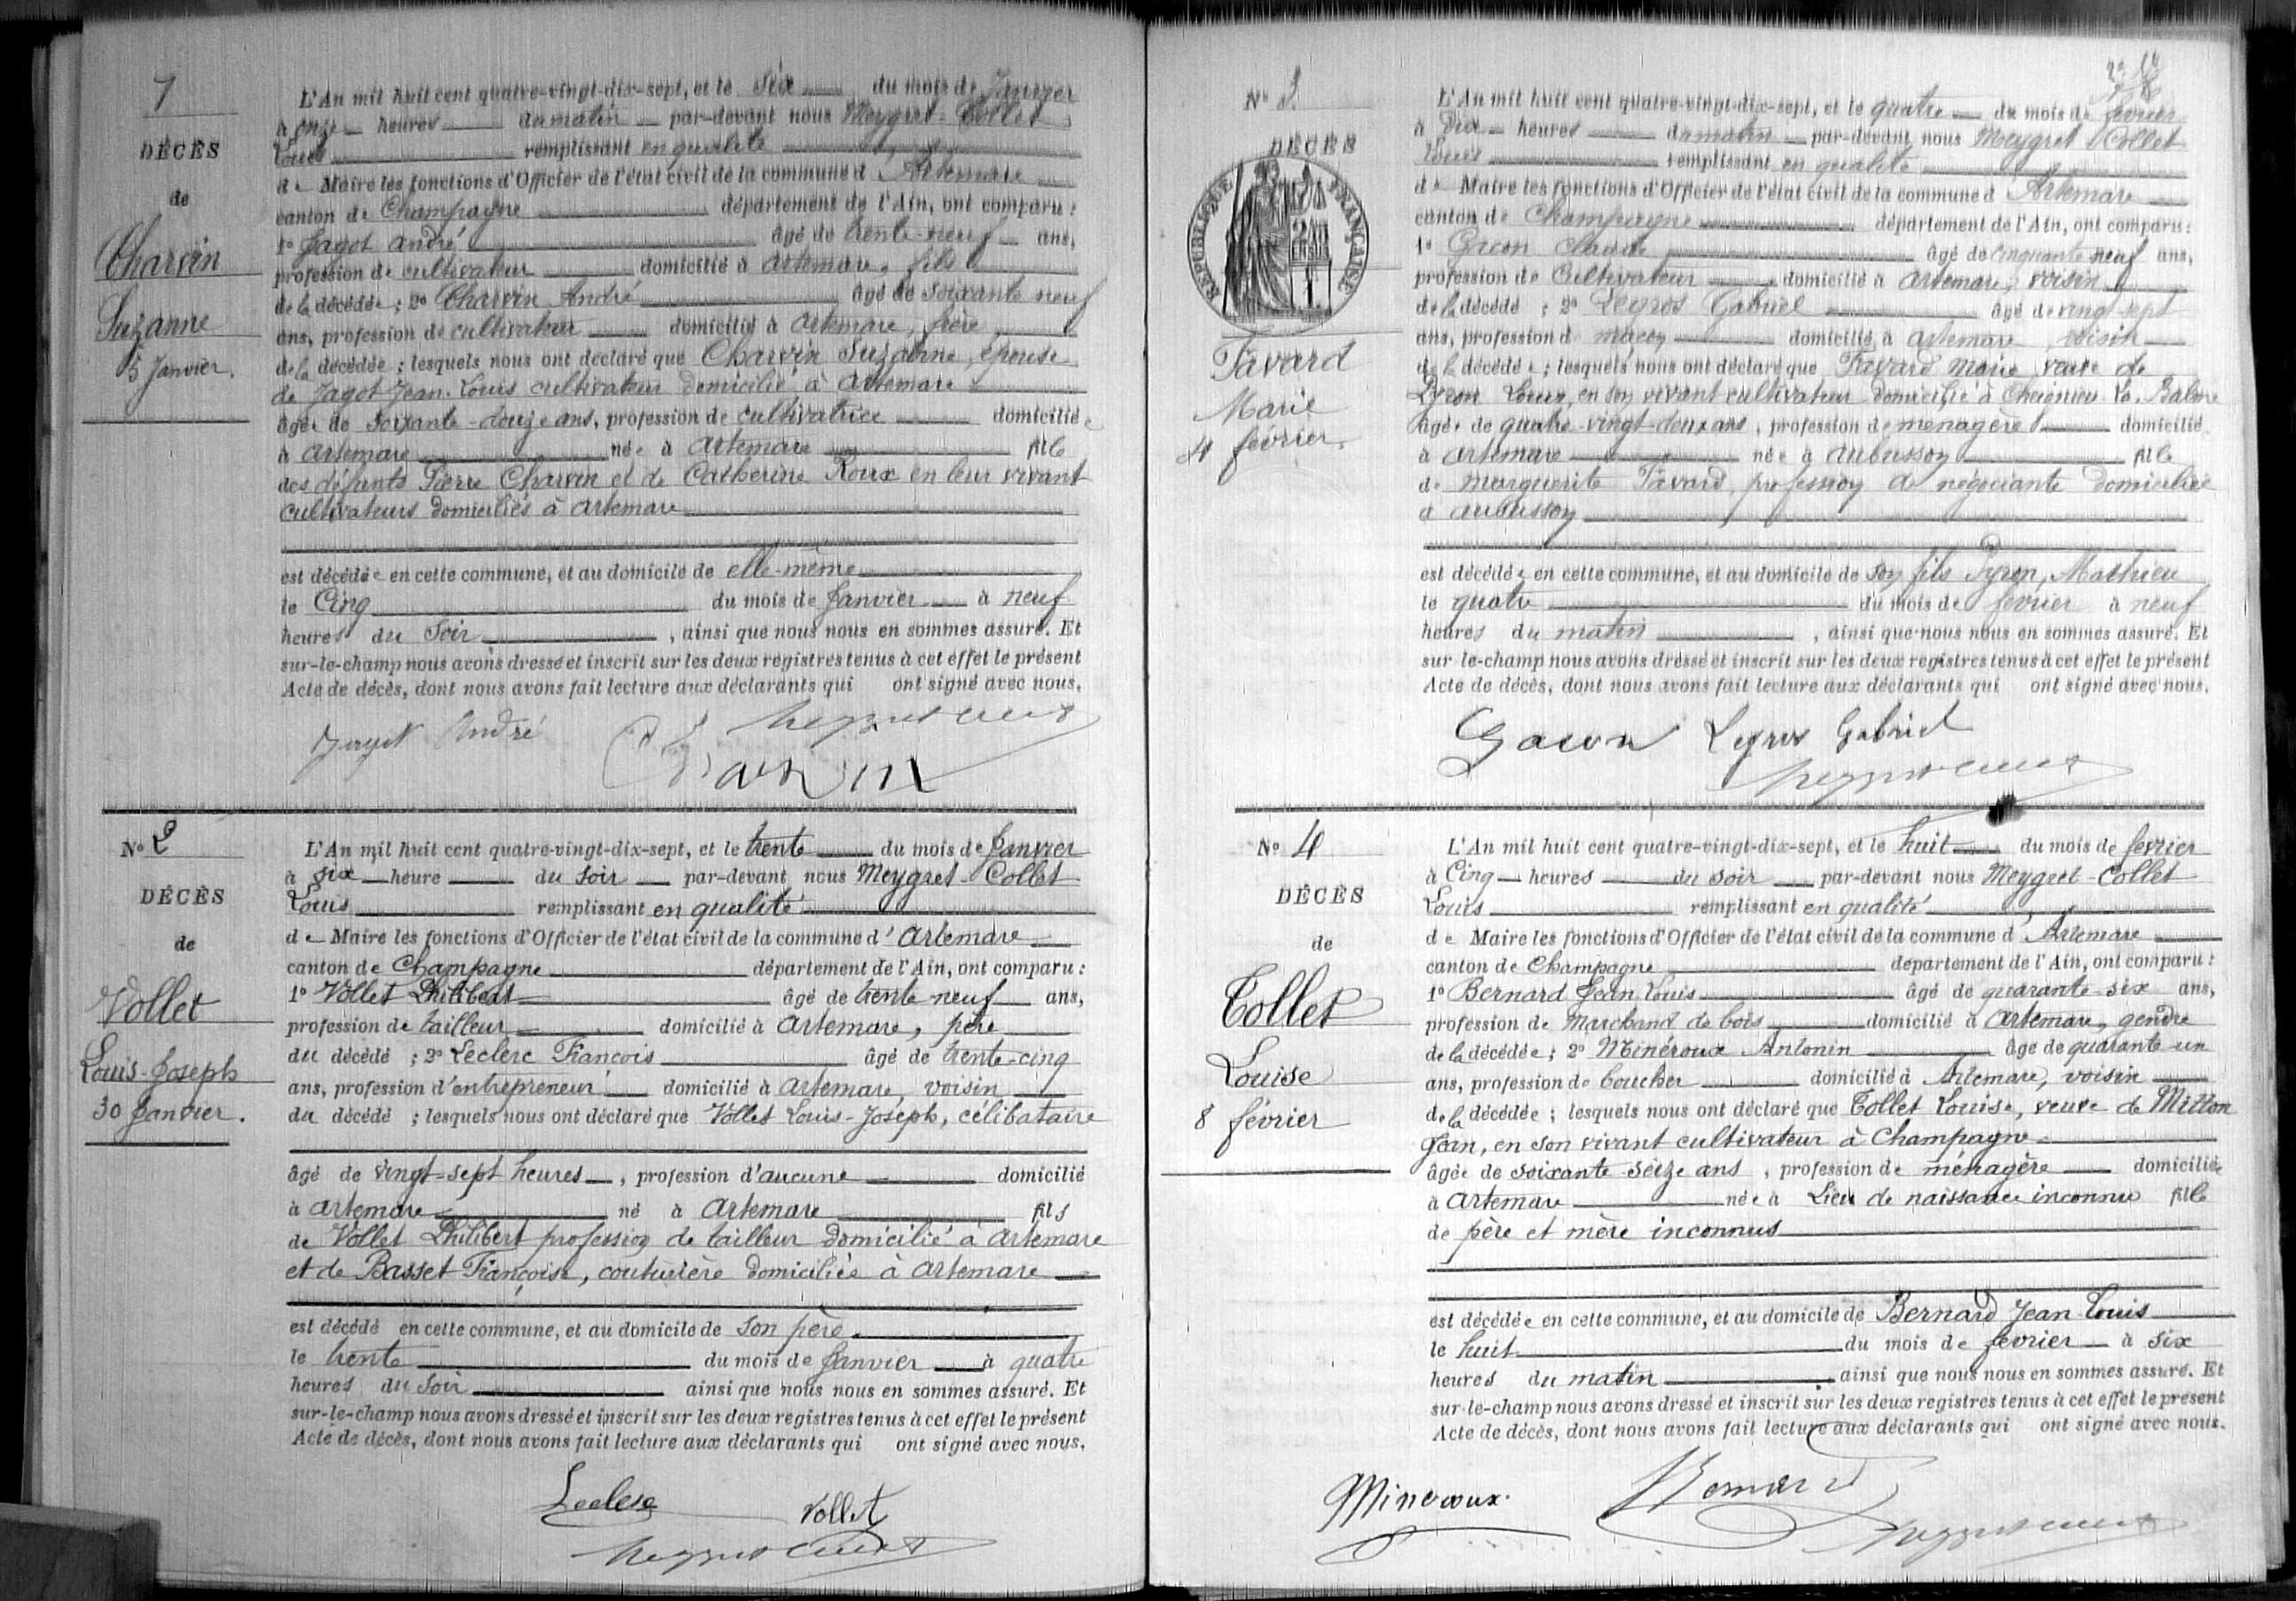 1
DÉCÈS
de
Charvin
Suzanne
5 Janvier.
L'An mil huit cent quatre-vingt-dix-sept, et le six du mois de Janvier
à onze heures du matin par-devant nous Meygret-Collet
Louis remplissant en qualité
de Maire les fonctions d'Officier de l'état civil de la commune d'Artemare
canton de Champagne département de l'Ain, ont comparu :
1º Jagot André âgé de trente-neuf ans,
profession de cultivateur domicilié à Artemare, fils
de la décédée ; 2º Charvin André âgé de soixante neuf
ans, profession de cultivateur domicilié à Artemare, frère
de la décédée ; lesquels nous ont déclaré que Charvin Suzanne, épouse
de Jagot Jean-Louis cultivateur domicilié à Artemare
âgée de soixante-douze ans, profession de cultivatrice domiciliée
à Artemare née à Artemare fille
des défunts Pierre Charvin et de Catherine Roux en leur vivant
cultivateurs domiciliés à Artemare
est décédée en cette commune, et au domicile de elle-même
le Cinq du mois de Janvier à neuf
heures du soir, ainsi que nous nous en sommes assuré. Et
sur-le-champ nous avons dressé et inscrit sur les deux registres tenus à cet effet le présent
Acte de décès, dont nous avons fait lecture aux déclarants qui ont signé avec nous.
Jagot André
Charvin
Nº 2
DÉCÈS
de
Vollet
Louis-Joseph
30 Janvier.
L'An mil huit cent quatre-vingt-dix-sept, et le trente du mois de Janvier
à six heure du soir par-devant nous Meygret-Collet
Louis remplissant en qualité
de Maire les fonctions d'Officier de l'état civil de la commune d'Artemare
canton de Champagne département de l'Ain, ont comparu :
1º Vollet Philibert âgé de trente-neuf ans,
profession de tailleur domicilié à Artemare, père
du décédé ; 2º Leclerc François âgé de trente-cinq
ans, profession d'entrepreneur domicilié à Artemare, voisin
du décédé ; lesquels nous ont déclaré que Vollet Louis-Joseph, célibataire
âgé de vingt-sept heures, profession d'aucune domicilié
à Artemare né à Artemare fils
de Vollet Philibert profession de tailleur domicilié à Artemare
et de Basset Françoise, couturière domiciliée à Artemare
est décédé en cette commune, et au domicile de son père
le trente du mois de Janvier à quatre
heures du soir ainsi que nous nous en sommes assuré. Et
sur-le-champ nous avons dressé et inscrit sur les deux registres tenus à cet effet le présent
Acte de décès, dont nous avons fait lecture aux déclarants qui ont signé avec nous.
Leclerc Vollet
Nº 3
DÉCÈS
RÉPUBLIQUE FRANÇAISE
Favard
Marie
4 février.
L'An mil huit cent quatre-vingt-dix-sept, et le quatre du mois de février
à dix heures du matin par-devant nous Meygret Collet
Louis remplissant en qualité
de Maire les fonctions d'Officier de l'état civil de la commune d'Artemare
canton de Champagne département de l'Ain, ont comparu :
1º Gacon Claude âgé de cinquante neuf ans,
profession de Cultivateur domicilié à Artemare, voisin
de la décédé ; 2º Legros Gabriel âgé de vingt-sept
ans, profession d maçon domicilié à Artemare voisin
de la décédée ; lesquels nous ont déclaré que Favard Marie veuve de
Pyron Louis, en son vivant cultivateur domicilié à Cheignieu-la-Balme
âgée de quatre-vingt-deux ans, profession de ménagère domicilié
à Artemare née à Aubusson fille
de Marguerite Favard, profession de négociante domiciliée
à Aubusson
est décédée en cette commune, et au domicile de son fils Pyron, Mathieu
le quatre du mois de février à neuf
heures du matin, ainsi que nous nous en sommes assuré. Et
sur-le-champ nous avons dressé et inscrit sur les deux registres tenus à cet effet le présent
Acte de décès, dont nous avons fait lecture aux déclarants qui ont signé avec nous.
Gacon Legros Gabriel
Nº 4
DÉCÈS
de
Tollet
Louise
8 février
L'An mil huit cent quatre-vingt-dix-sept, et le huit du mois de février
à Cinq heures du soir par-devant nous Meygret-Collet
Louis remplissant en qualité
de Maire les fonctions d'Officier de l'état civil de la commune d'Artemare
canton de Champagne département de l'Ain, ont comparu :
1º Bernard Jean Louis âgé de quarante-six ans,
profession de Marchand de bois domicilié à Artemare, gendre
de la décédée ; 2º Minéroux Antonin âgé de quarante-un
ans, profession de boucher domicilié à Artemare, voisin
de la décédée ; lesquels nous ont déclaré que Tollet Louise, veuve de Mitton
Jean, en son vivant cultivateur à Champagne
âgée de soixante seize ans, profession de ménagère domiciliée
à Artemare née à Lieu de naissance inconnu fille
de père et mère inconnus
est décédée en cette commune, et au domicile de Bernard Jean Louis
le huit du mois de février à six
heures du matin ainsi que nous nous en sommes assuré. Et
sur-le-champ nous avons dressé et inscrit sur les deux registres tenus à cet effet le présent
Acte de décès, dont nous avons fait lecture aux déclarants qui ont signé avec nous.
Mineroux Bernard